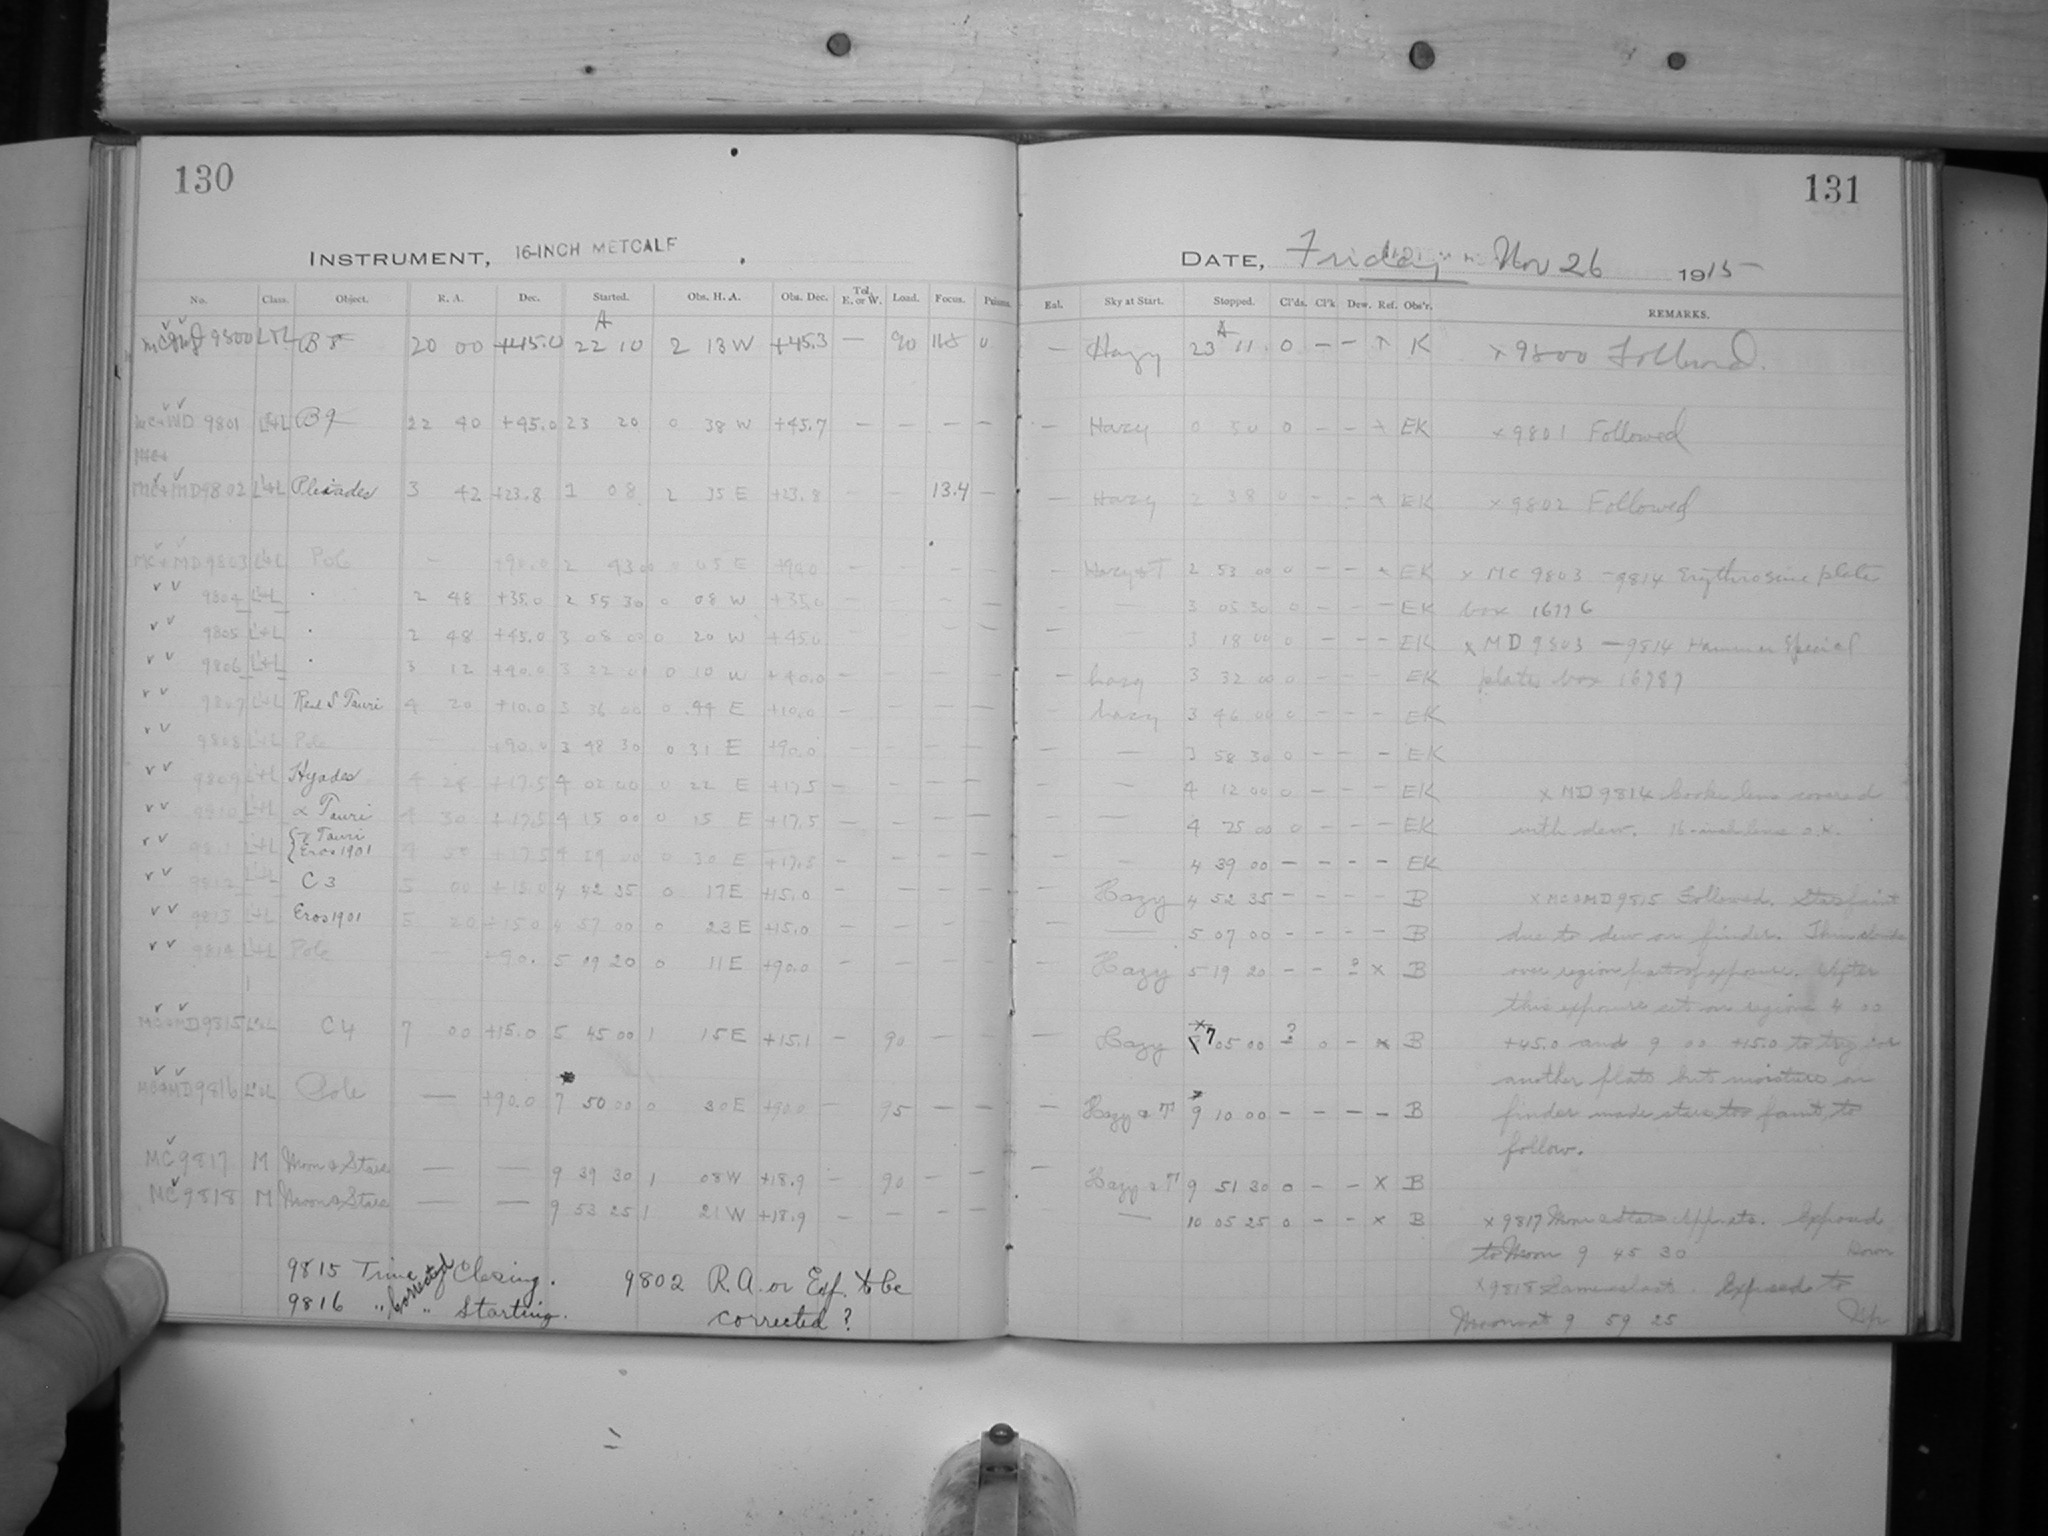 130
INSTRUMENT, 16-INCH METCALF
No. Class. Object. R. A. Dec. Started. Obs. H. A. Obs. Dec. Tel. E. or W. Load. Focus. Prisms.
A
9800 L+L B8 20 00 +45.0 22 10 2 13 W +45.3 — 90 0
MC+MD 9801 L+L B9 22 40 +45.0 23 20 0 38 W +45.7 — — — —
MC+MD 9802 L+L Pleiades 3 42 +23.8 1 08 2 35 E +23.8 — — 13.4 —
MC+MD 9803 L+L Pole — +90.0 2 43 00 0 05 E +90.0
9804 L+L " 2 48 +35.0 2 55 30 0 08 W +35.0 — — — —
9805 L+L " 2 48 +45.0 3 08 00 0 20 W +45.0
9806 L+L " 3 12 +40.0 3 22 00 0 10 W +40.0 — — — —
9807 L+L R and S Tauri 4 20 +10.0 3 36 00 0 44 E +10.0 — — — —
9808 L+L Pole — +90.0 3 48 30 0 31 E +90.0 — — — —
9809 L+L Hyades 4 28 +17.5 4 02 00 0 22 E +17.5 — — — —
9810 L+L α Tauri 4 30 +17.5 4 15 00 0 15 E +17.5 — — — —
9811 L+L Tauri
Eros 1901 +17.5 4 29 00 0 30 E +17.5 — — — —
9812 C3 5 00 +15.0 4 42 35 0 17 E +15.0 — — — —
9813 L+L Eros 1901 5 20 +15.0 4 57 00 0 23 E +15.0 — — — —
9814 L+L Pole — +90. 5 09 20 0 11 E +90.0 — — — —
MC+MD 9815 L+L C4 7 00 +15.0 5 45 00 1 15 E +15.1 — 90 — —
MC+MD 9816 L+L Pole — +90.0 7 50 00 0 30 E +90.0 — 95 — —
MC 9817 M Moon & Stars — — 9 39 30 1 08 W +18.9 — 90 — —
MC 9818 M Moon & Stars — — 9 53 25 1 21 W +18.9 — — — —
9815 Time corrected Closing.
9816 " " Starting.
9802 R.A. or Exp. to be
corrected?
131
DATE, Friday Nov 26 1915
Eal. Sky at Start. Stopped. Cl'ds. Cl'k. Dew. Ref. Obs'r. REMARKS.
— Hazy 23 11 0 — — x K x 9800 Followed.
— Hazy 0 50 0 — — x EK x 9801 Followed
— Hazy 2 38 0 — — x EK x 9802 Followed
— Hazy & T 2 53 00 0 — — x EK x MC 9803 – 9814 Erythrosine plates
— — 3 05 30 0 — — — EK box 16776
— — 3 18 00 0 — — — EK x MD 9803 – 9814 Hammer Special
— hazy 3 32 00 0 — — — EK plates box 16787
— hazy 3 46 00 0 — — — EK
— — 3 58 30 0 — — — EK
— 4 12 00 0 — — — EK x MD 9814 Cooke lens covered
— — 4 25 00 0 — — — EK with dew. 16-inch lens o.k.
— — 4 39 00 — — — — EK
— Hazy 4 52 35 — — — — B x MC & MD 9815 Followed. Stars faint
— — 5 07 00 — — — — B due to dew on finder. Thin clouds
— Hazy 5 19 20 — — ? x B over region part of exposure. After
this exposure set on regions 4 00
— Hazy 7 05 00 ? 0 — x B +45.0 and 9 00 +15.0 to try for
another plate but moisture on
— Hazy & T 9 10 00 — — — — B finder made stars too faint to
follow.
— Hazy & T 9 51 30 0 — — x B
— 10 05 25 0 — — x B x 9817 Moon & Stars Exposed
to Moon 9 45 30
x 9818 Same as last. Exposed to
Moon at 9 59 25